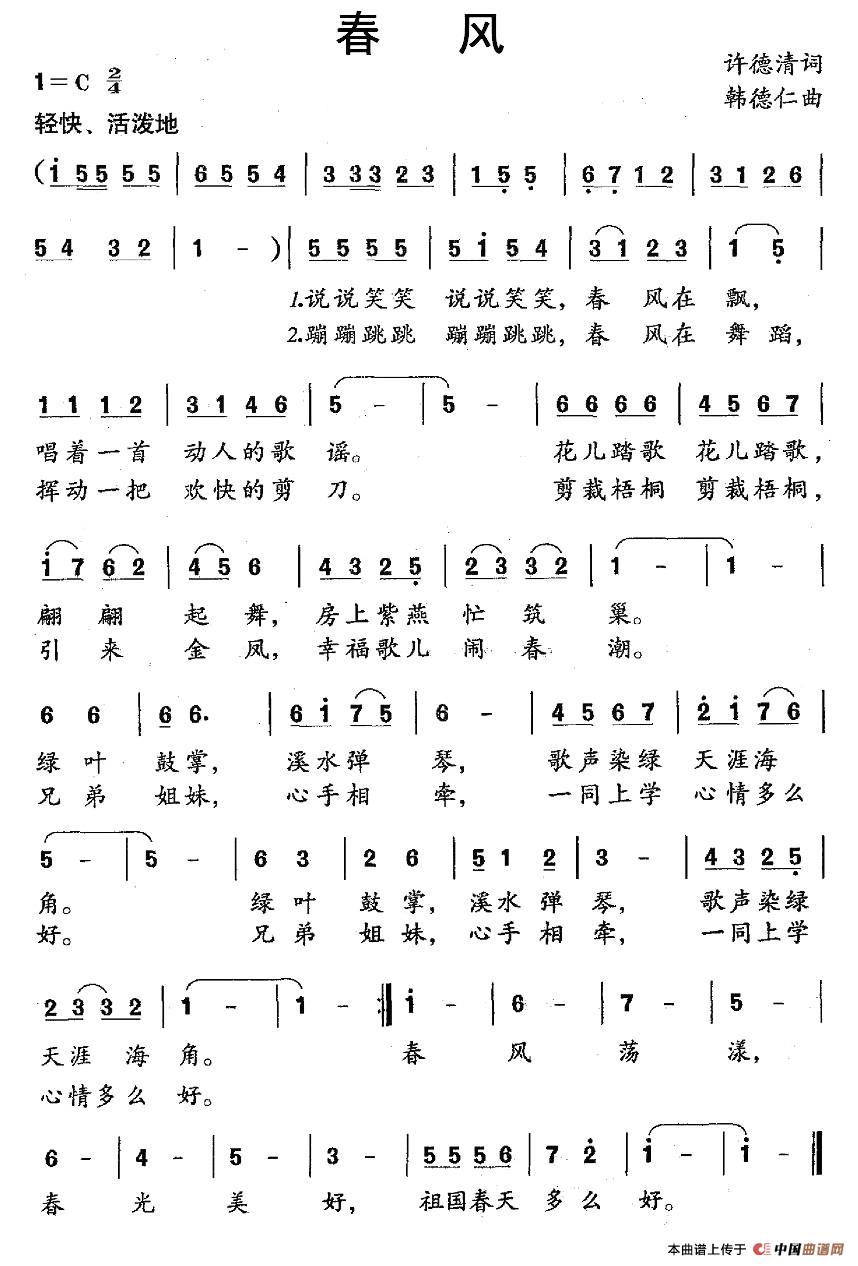 春 风
1=C 2/4
许德清词
韩德仁曲
轻快、活泼地
(i 555 55 | 6554 | 3 3323 | 155 | 6712 | 3126
54 32 | 1 - ) | 5555 | 5i54 | 3123 | 1 5 |
1.说说笑笑 说说笑笑，春 风在 飘，
2.蹦蹦跳跳 蹦蹦跳跳，春 风在 舞 蹈，
11 12 | 3146 | 5 - | 5 - | 6666 | 4567 |
唱着一首 动人的歌 谣。 花儿踏歌 花儿踏歌，
挥动一把 欢快的剪 刀。 剪裁梧桐 剪裁梧桐，
i7 62 | 45 6 | 4325 | 23 32 | 1 - | 1 - |
翩 翩 起 舞，房上紫燕 忙 筑 巢。
引 来 金 凤，幸福歌儿 闹 春 潮。
6 6 | 6 6. | 6i 75 | 6 - | 4567 | 2i76 |
绿 叶 鼓掌， 溪水弹 琴， 歌声染绿 天涯海
兄 弟 姐妹， 心手相 牵， 一同上学 心情多么
5 - | 5 - | 6 3 | 2 6 | 5 1 2 | 3 - | 4325 |
角。 绿 叶 鼓 掌，溪水 弹 琴， 歌声染绿
好。 兄 弟 姐 妹，心手 相 牵， 一同上学
23 32 | 1 - | 1 - :| i - | 6 - | 7 - | 5 - |
天涯 海 角。 春 风 荡 漾，
心情多么 好。
6 - | 4 - | 5 - | 3 - | 5556 | 7 2 | i - | i - ‖
春 光 美 好， 祖国春天 多 么 好。
本曲谱上传于 中国曲谱网
www.qupu123.com